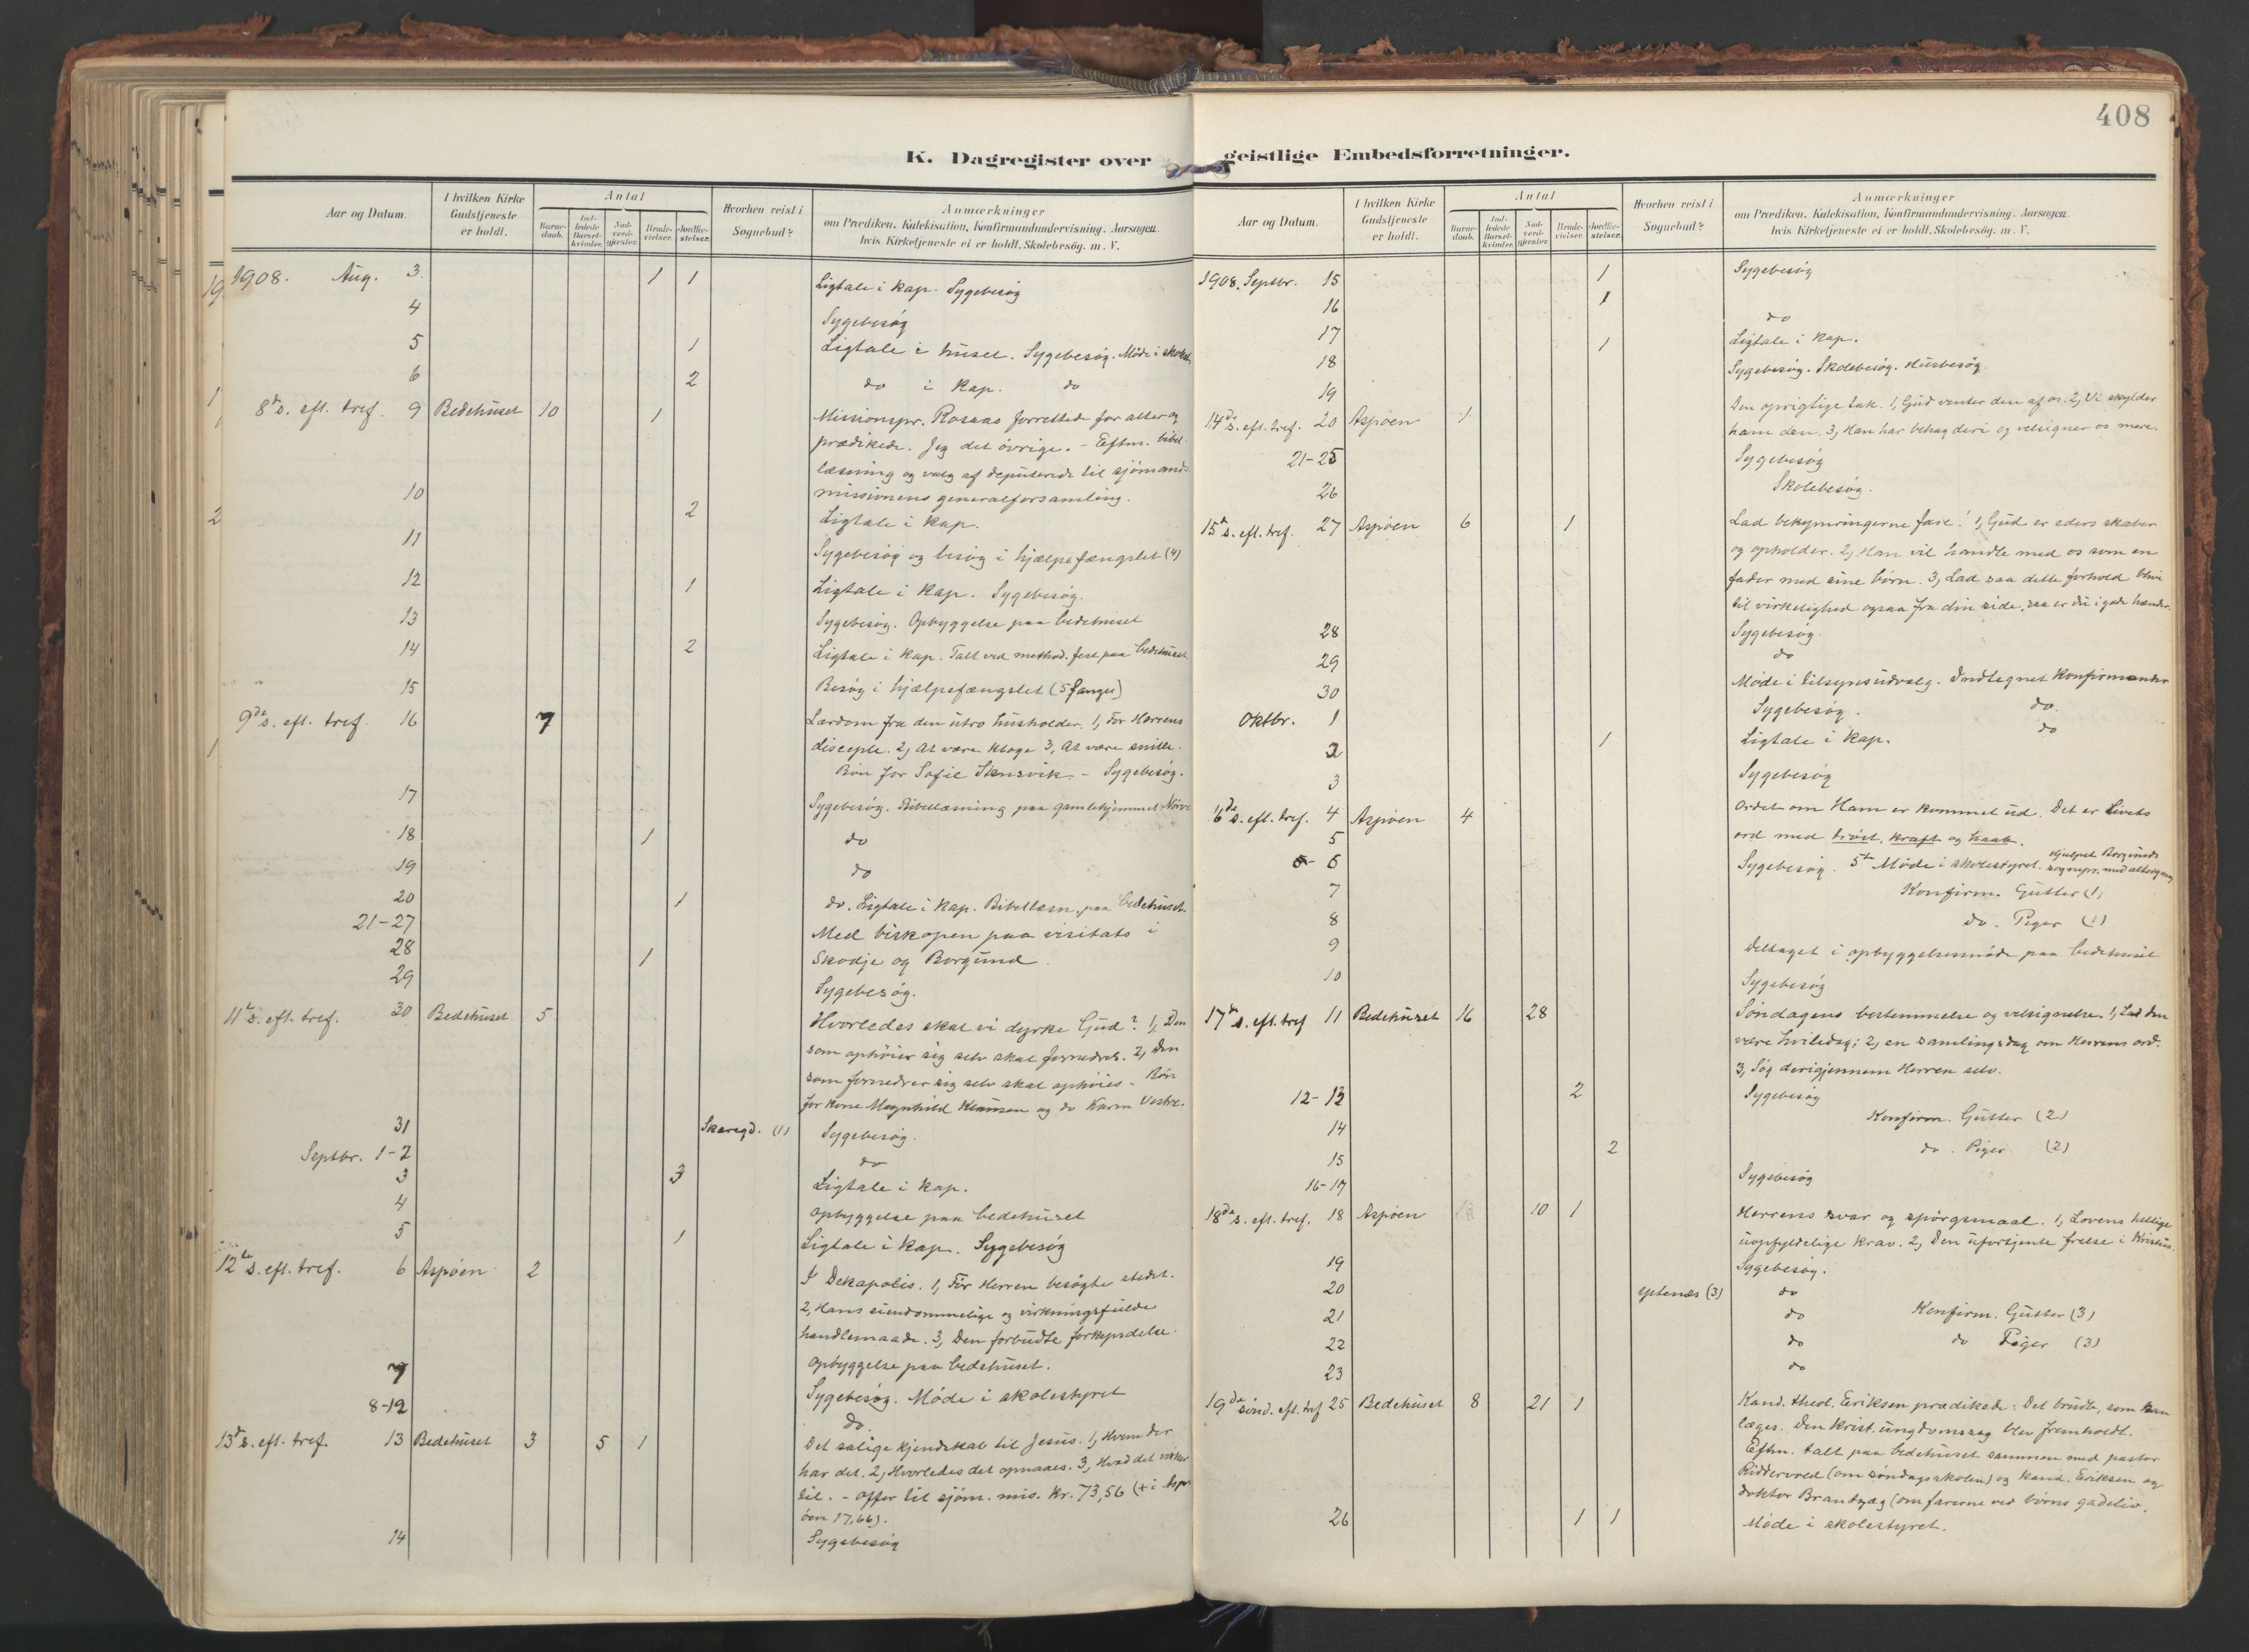 408
K. Dagregister over geistlige Embedsforretninger.
Aar og Datum.
I hvilken Kirke Gudstjeneste er holdt.
Antal
Barne-daab.
Ind-ledede Barsel-kvinder.
Nad-verd-gjester.
Brude-vielser.
Jordfæ-stelser.
Hvorhen reist i Sognebud?
Anmærkninger
om Prædiken, Katekisation, Konfirmandundervisning. Aarsagen,
hvis Kirketjeneste ei er holdt, Skolebesøg. m. V.
1908. Aug. 3 1 1 Ligtale i kap. Sygebesøg
4 Sygebesøg
5 1 Ligtale i huset. Sygebesøg. Møde i skolest.
6 2 do i kap. do
8de s. eft. tref. 9 Bedehuset 10 1 Missionspr. Rosaas forretted for alter og
prædikede. Jeg det øvrige. – Eftm. bibel-
læsning og valg af deputerede til sjømands-
missionens generalforsamling.
10 2 Ligtale i kap.
11 Sygebesøg og besøg i hjælpefængslet (4)
12 1 Ligtale i kap. Sygebesøg.
13 Sygebesøg. Opbyggelse paa bedehuset
14 2 Ligtale i kap. Talt ved method. fest paa bedehuset
15 Besøg i hjælpefængslet (5 fanger)
9de s. eft. tref. 16 7 Lærdom fra den utro husholder. 1, For Herrens
disciple. 2, At være kloge 3, At være snille.
Bøn for Sofie Stensvik. – Sygebesøg.
17 Sygebesøg. Bibellæsning paa gamlehjemmet Nørve
18 1 do
19 do
20 1 do. Ligtale i kap. Bibellæsn. paa bedehuset
21-27 Med biskopen paa visitats i
28 1 Skodje og Borgund.
29 Sygebesøg.
11te s. eft. tref. 30 Bedehuset 5 Hvorledes skal vi dyrke Gud? 1, Den
som ophøier sig selv skal fornedres. 2, Den
som fornedrer sig selv skal ophøies. – Bøn
for kone Magnhild Klausen og do Karen Vestre.
31 Skaregd. (1) Sygebesøg.
Septbr. 1-2 do
3 3 Ligtale i kap.
4 Opbyggelse paa bedehuset
5 1 Ligtale i kap. Sygebesøg
12te s. eft. tref. 6 Aspøen 2 I Dekapolis. 1, Før Herren besøgte stedet.
2, Hans eiendommelige og virkningsfulde
handlemaade. 3, Den forbudte forkyndelse.
Opbyggelse paa bedehuset.
7 Sygebesøg. Møde i skolestyret
8-12 do.
13de s. eft. tref. 13 Bedehuset 3 5 1 Det salige kjendskab til Jesus. 1, Hvem der
har det. 2, Hvorledes det opnaaes. 3, Hvad det virker
til. – Offer til sjøm. mis. kr. 73,56 (+ i Asp-
øen 17,66).
14 Sygebesøg
1908. Septbr. 15 1 Sygebesøg
16 1 do
17 1 Ligtale i kap.
18 Sygebesøg. Skolebesøg. Husbesøg.
19
14de s. eft. tref. 20 Aspøen 1 Den oprigtige tak. 1, Gud venter den af os. 2, Vi skylder
ham den. 3, Han har behag deri og velsigner os mere.
21-25 Sygebesøg
26 Skolebesøg.
15de s. eft. tref. 27 Aspøen 6 1 Lad bekymringerne fare! 1, Gud er eders skaber
og opholder. 2, Han vil handle med os som en
fader med sine børn. 3, Lad saa dette forhold blive
til virkelighed ogsaa fra din side, saa er du i gode hænder.
28 Sygebesøg.
29 do
30 Møde i tilsynsudvalg. Indtegnet konfirmander
Oktbr. 1 Sygebesøg. do.
2 1 Ligtale i kap. do
3 Sygebesøg
16de s. eft. tref. 4 Aspøen 4 Ordet om Ham er kommet ud. Det er livets
5 ord med trøst, kraft og haab.
5- 6 Sygebesøg. 5te Møde i skolestyret. Hjulpet Borgunds sognepr. med altergang
7 Konfirm. Gutter (1)
8 do. Piger (1)
9 Deltaget i opbyggelsesmøde paa bedehuset
10 Sygebesøg
17de s. eft. tref 11 Bedehuset 16 28 Søndagens bestemmelse og velsignelse. 1, Lad den
være hviledag; 2, en samlingsdag om Herrens ord.
3, Søg derigjennem Herren selv.
12-13 2 Sygebesøg
14 Konfirm. Gutter (2)
15 2 do. Piger (2)
16-17 Sygebesøg
18de s. eft. tref. 18 Aspøen 10 1 Herrens svar og spørgsmaal. 1, Lovens hellige
uopfyldelige krav. 2, Den ufortjente frelse i Kristus.
19 Sygebesøg.
20 ystenæs (3) do
21 do Konfirm. Gutter (3)
22 do do Piger (3)
23 do
19de sønd. eft. tref 25 Bedehuset 8 21 1 Kand. theol. Eriksen prædikede: Det brudte, som kan
læges. Den krist. ungdomssag blev fremholdt.
Eftm. talt paa bedehuset sammen med pastor
Riddervold (om søndagsskolen) og kand. Eriksen og
doktor Brantzæg (om farerne ved børns gadeliv.
26 1 1 Møde i skolestyret.